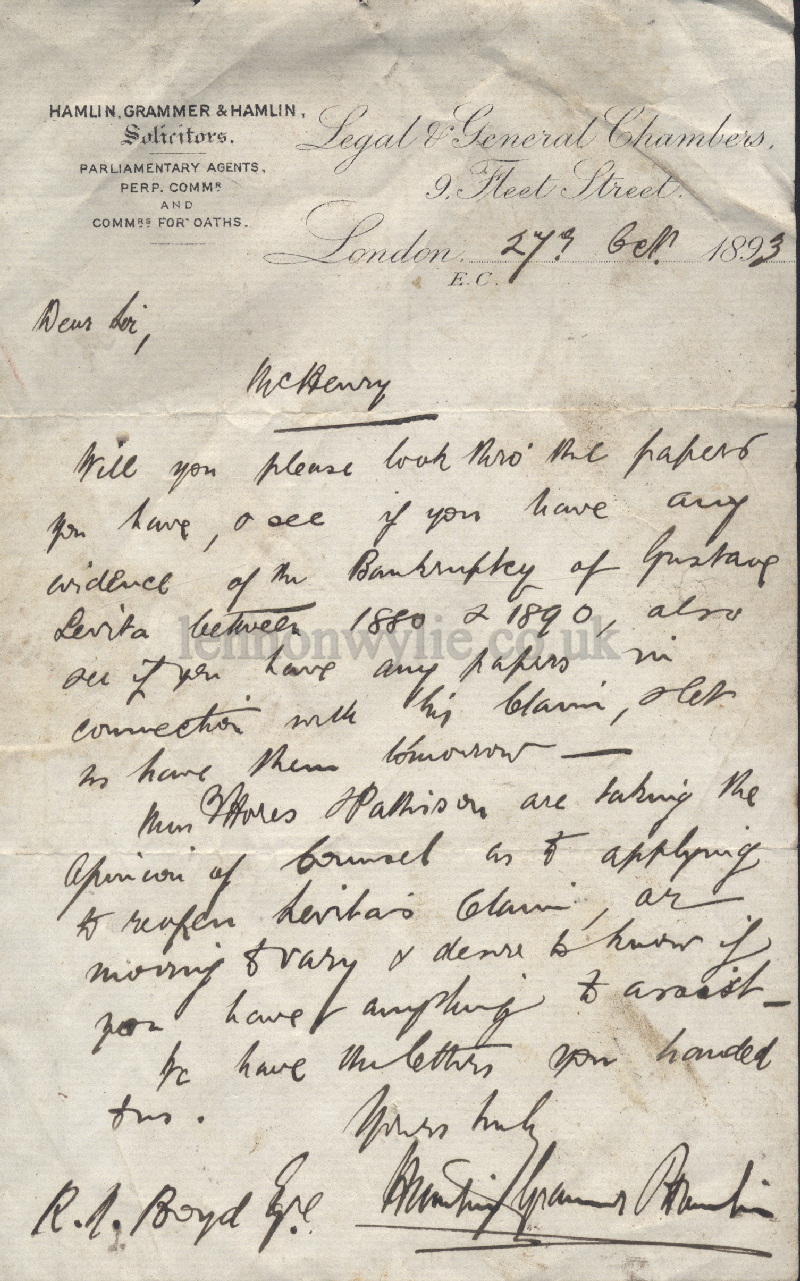 HAMLIN, GRAMMER & HAMLIN,
Solicitors.
PARLIAMENTARY AGENTS,
PERP. COMMR
AND
COMMRS FOR OATHS.
Legal & General Chambers,
9, Fleet Street.
London, 27th Octr 1893
E.C.
Dear Sir,
McHenry
Will you please look thro' the papers
you have, & see if you have any
evidence of the Bankruptcy of Gustave
Levita between 1880 & 1890, also
see if you have any papers in
connection with his Claim, & let
us have them tomorrow —
Hores & Pattison are taking the
opinion of Counsel as to applying
to reopen Levita's Claim, or
moving to vary & desire to know if
you have anything to assist —
We have the letters you handed
to us.
Yours truly
Hamlin Grammer & Hamlin
R. Boyd Esq.
lennonwylie.co.uk